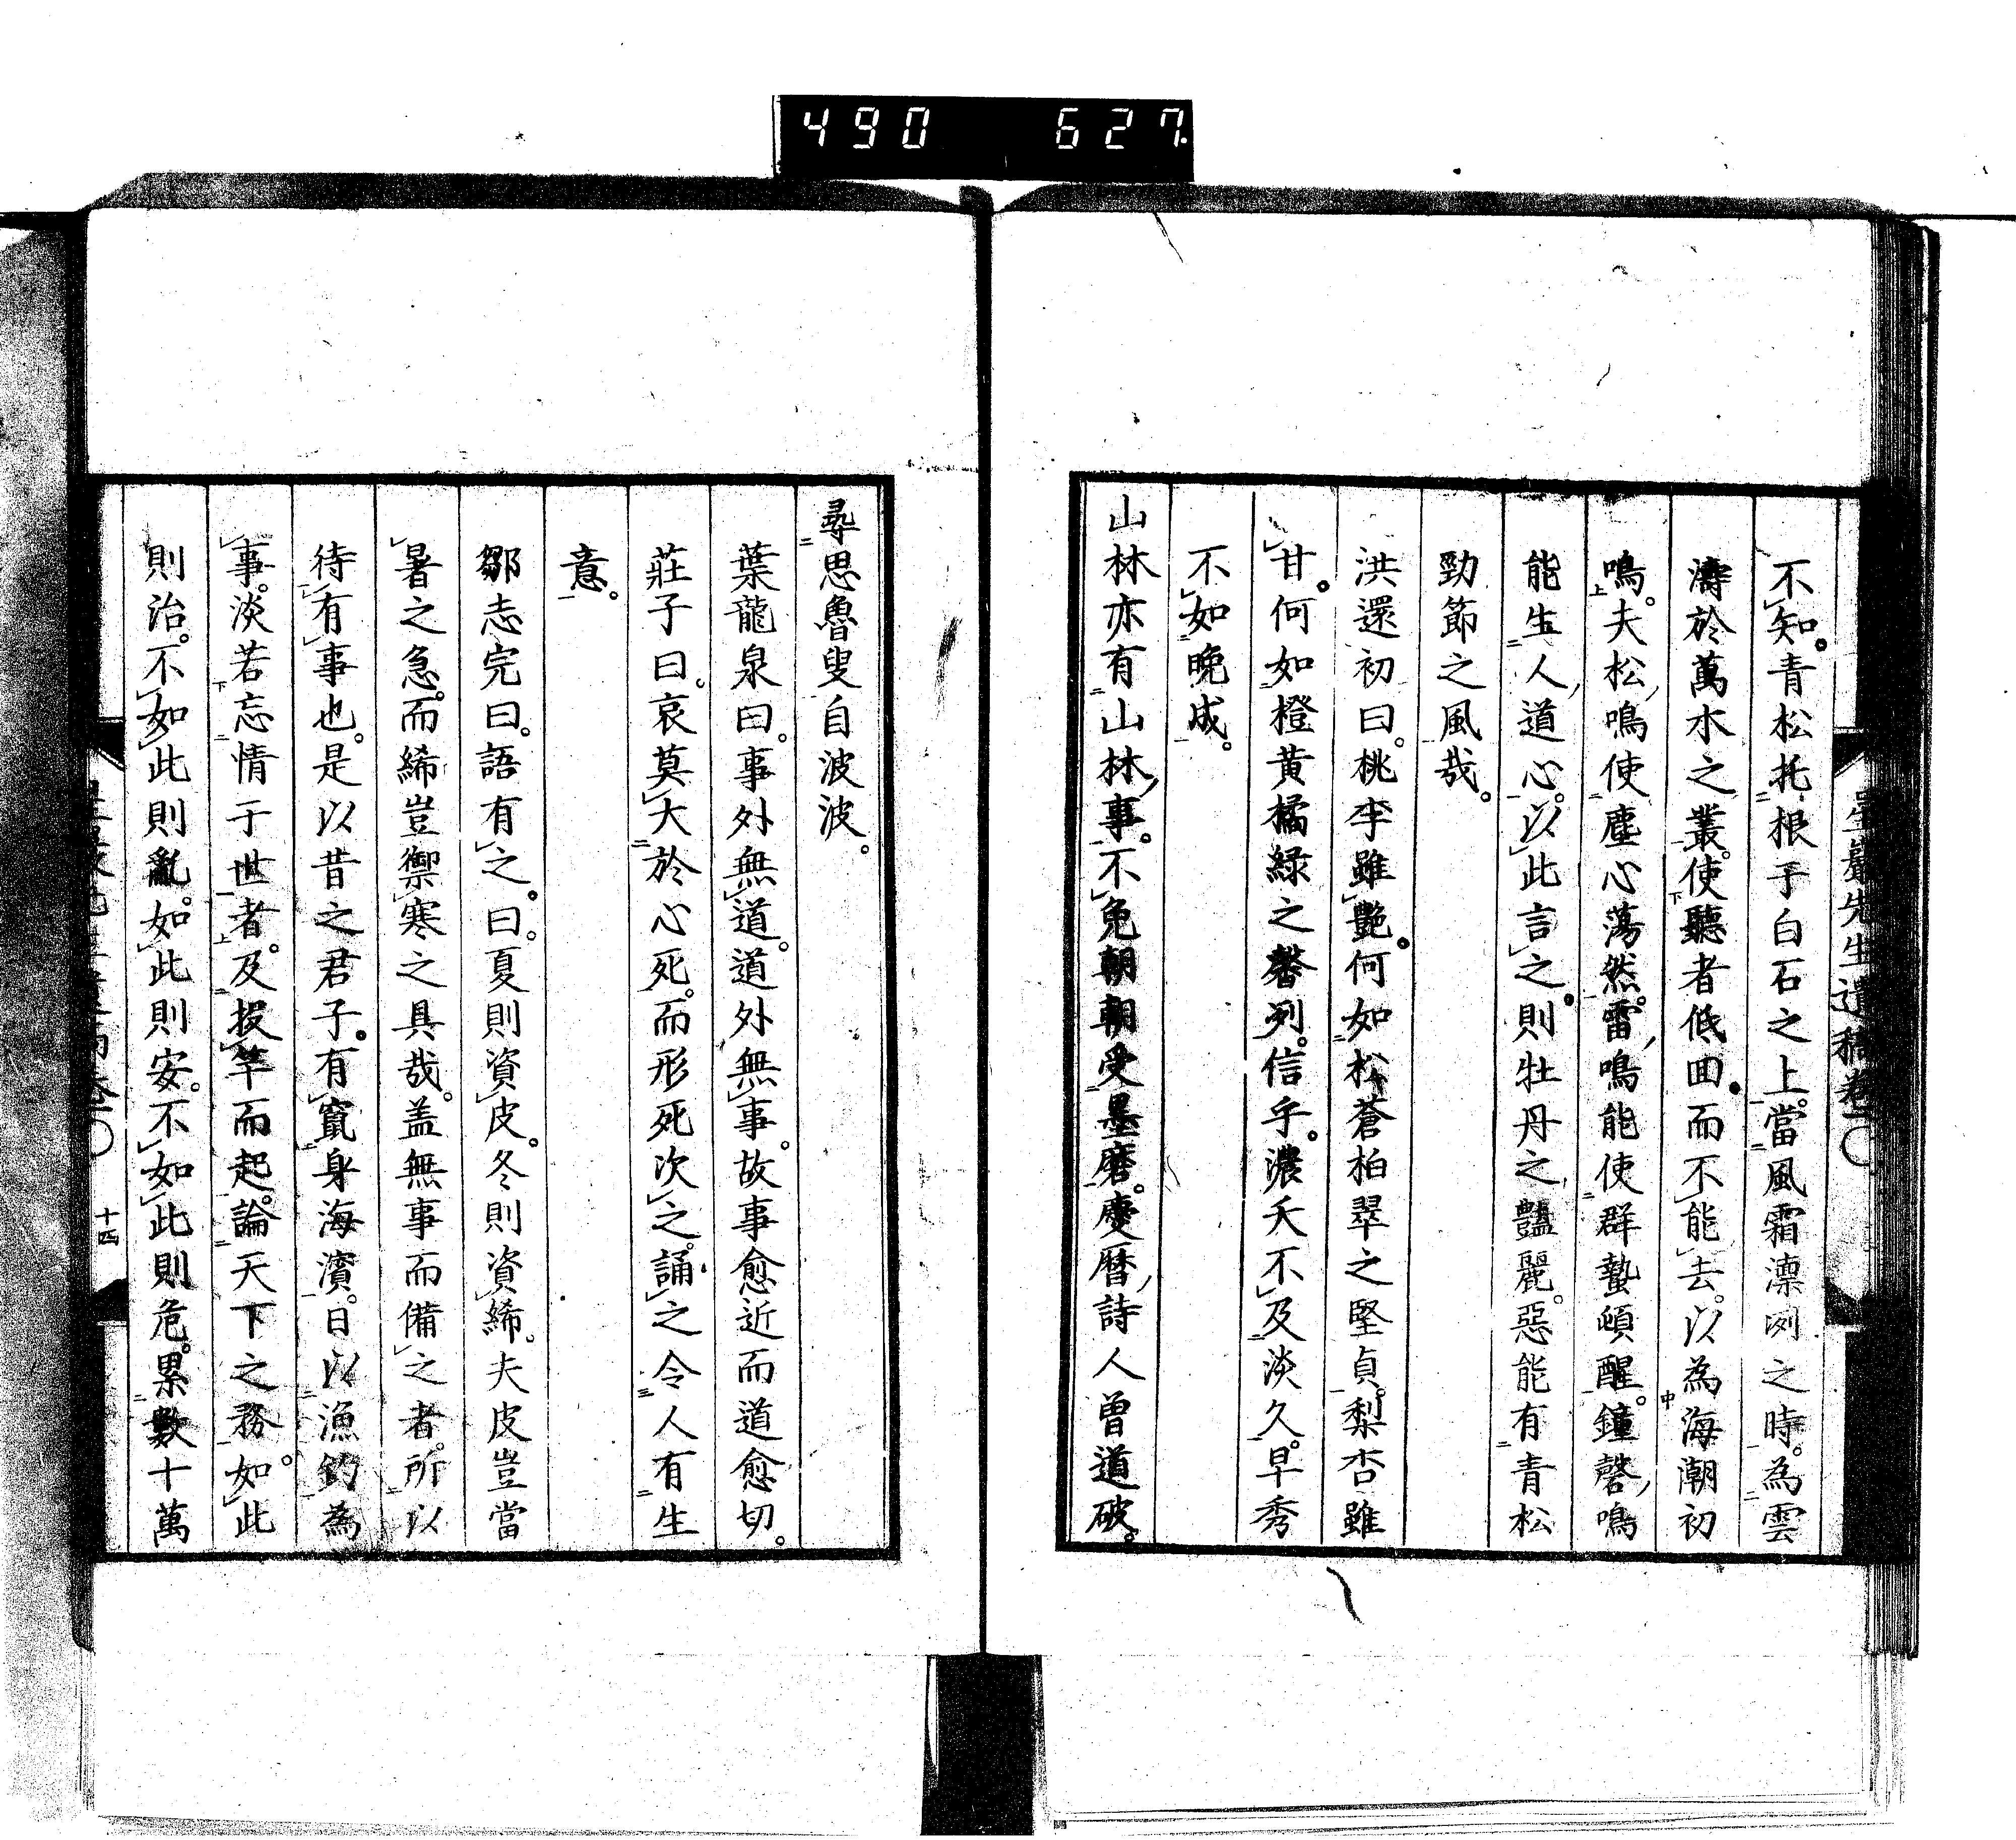 490 627
星巖先生遺稿卷一〇
不知。青松托根乎白石之上。當風霜凛冽之時。為雲
濤於萬木之叢。使聽者低回。而不能去。以為海潮初
鳴。夫松鳴使塵心蕩然。雷鳴能使群蟄頓醒。鐘磬鳴
能生人道心。以此言之。則牡丹之豔麗。惡能有青松
勁節之風哉。
洪還初曰。桃李雖艶。何如松蒼柏翠之堅貞。梨杏雖
甘。何如橙黃橘緑之馨冽。信乎。濃夭不及淡久。早秀
不如晚成。
山林亦有山林事。不免朝朝受墨磨。慶曆詩人曾道破。
尋思魯叟自波波。
葉龍泉曰。事外無道。道外無事。故事愈近而道愈切。
莊子曰。哀莫大於心死。而形死次之。誦之令人有生
意。
鄒志完曰。語有之。曰。夏則資皮。冬則資絺。夫皮豈當
暑之急。而絺豈禦寒之具哉。盖無事而備之者。所以
待有事也。是以昔之君子。有竄身海濱。日以漁釣為
事。淡若忘情于世者。及投竿而起。論天下之務。如此
則治。不如此則亂。如此則安。不如此則危。累數十萬
十四